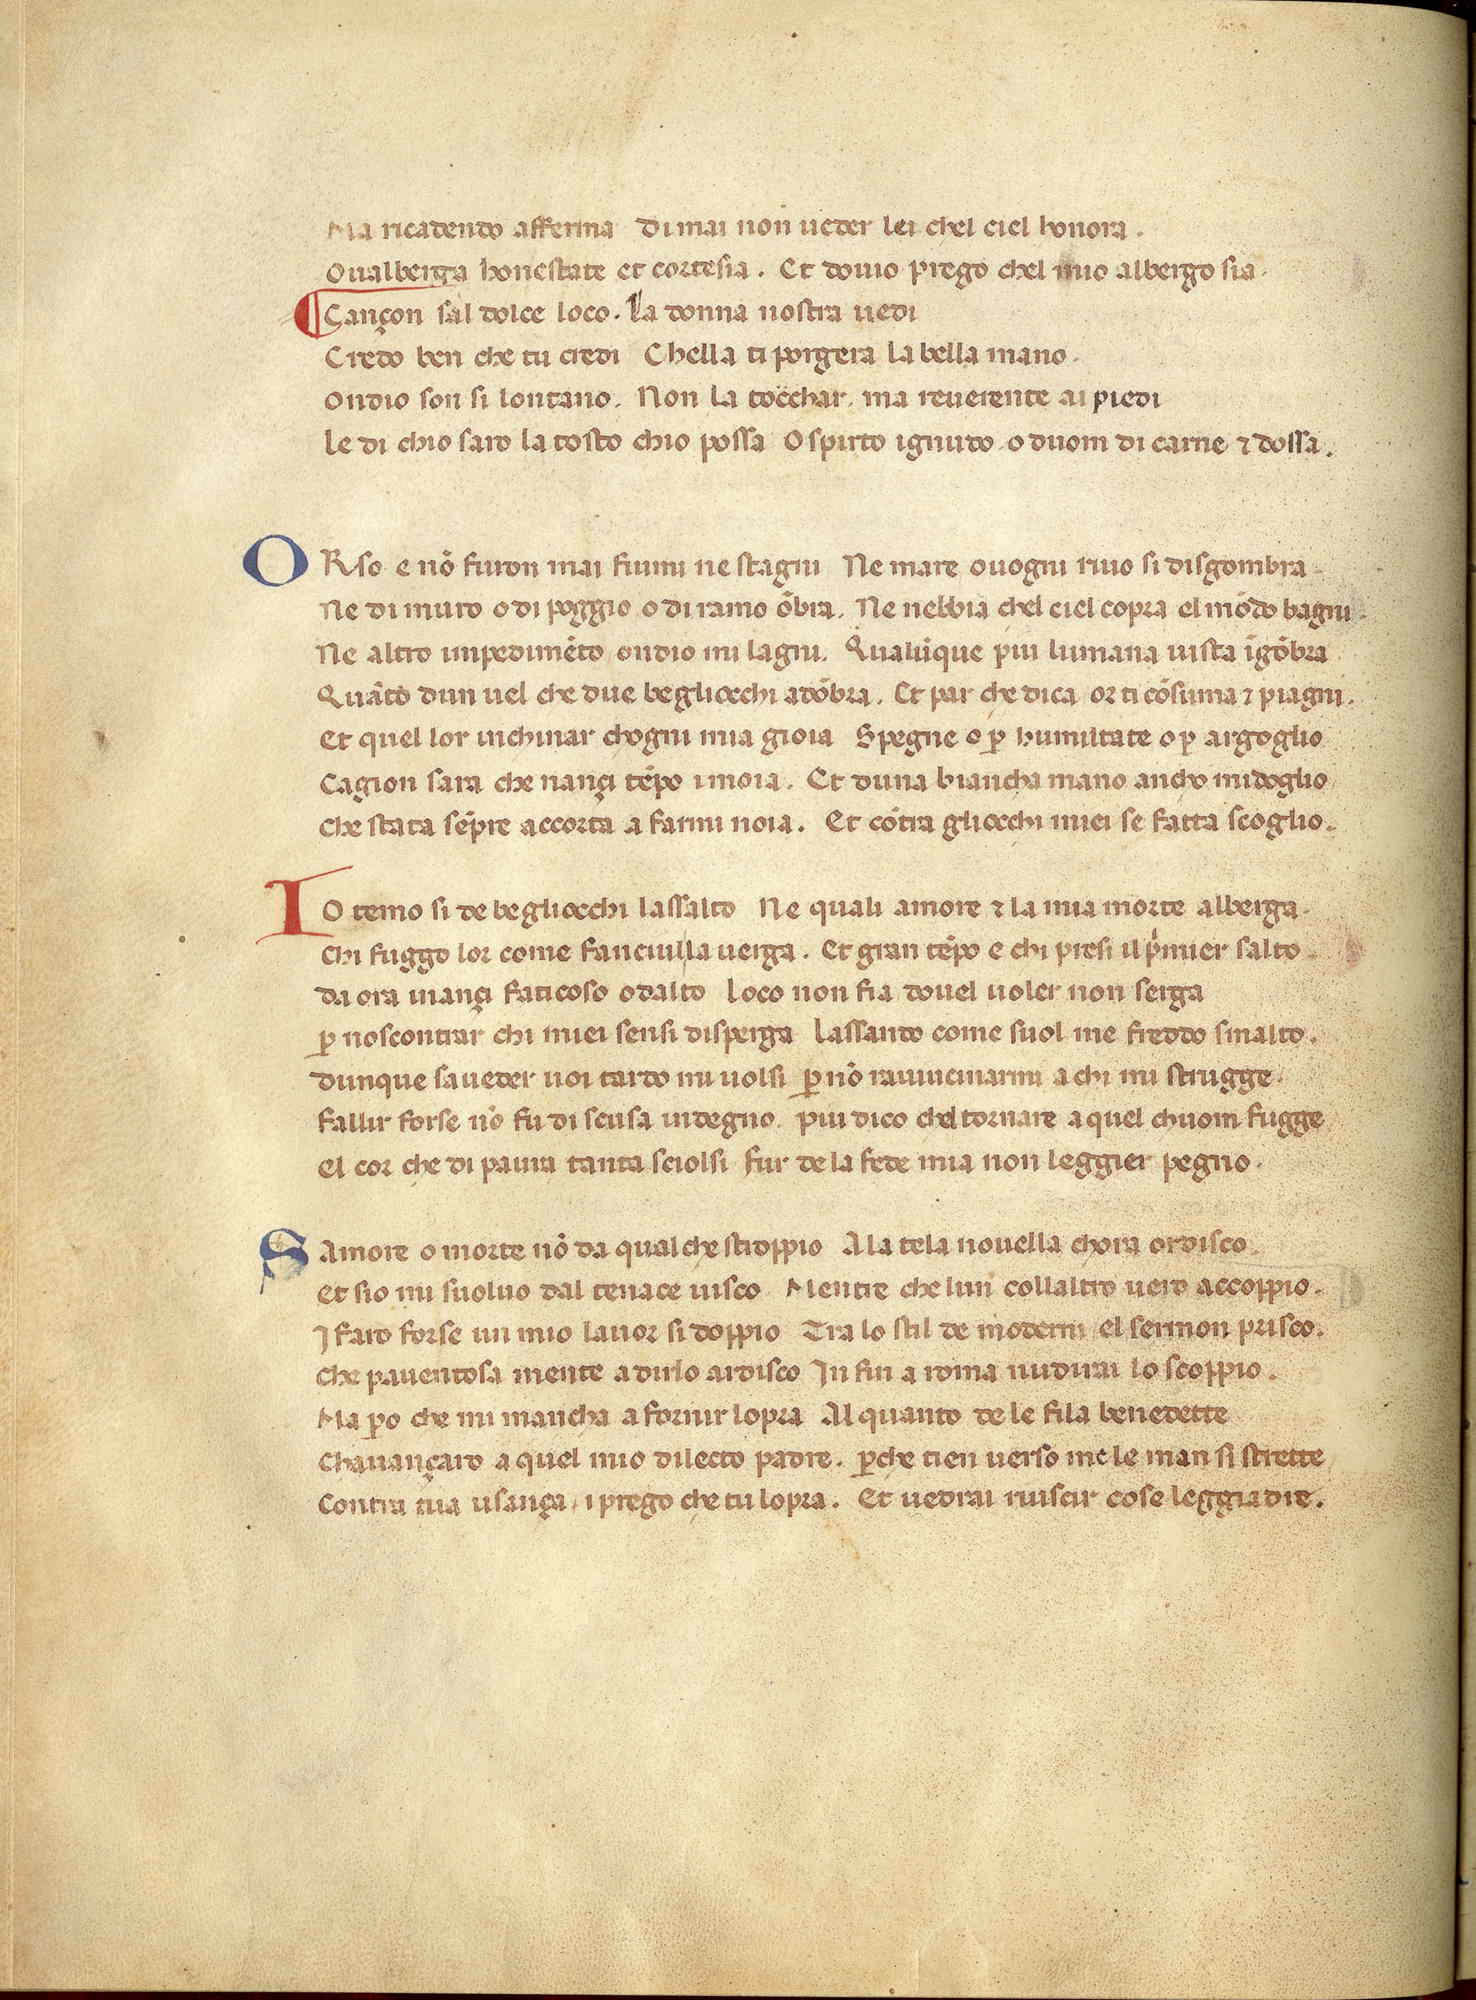 Ma ricadendo afferma di mai non ueder lei chel ciel honora.
Oualberga honestate et cortesia. Et douio prego chel mio albergo sia.
Cançon sal dolce loco. la donna nostra uedi
Credo ben che tu credi Chella ti porgera la bella mano.
Ondio son si lontano. Non la tocchar. ma reuerente ai piedi
le di chio saro la tosto chio possa O spirto ignudo o duom di carne ⁊ dossa.
ORso e nõ furon mai fiumi ne stagni Ne mare ouogni riuo si disgombra.
Ne di muro o di poggio o di ramo õbra. Ne nebbia chel ciel copra el mõdo bagni.
Ne altro impedimẽto ondio mi lagni. Qualũque piu lumana uista ĩgõbra
Quãto dun uel che due begliocchi adõbra. Et par che dica or ti cõsuma ⁊ piagni.
Et quel lor inchinar chogni mia gioia Spegne o ꝑ humiltate o ꝑ argoglio
Cagion sara che nançi tẽpo i moia. Et duna biancha mano ancho mi doglio
che stata sẽpre accorta a farmi noia. Et cõtra gliocchi miei se fatta scoglio.
IO temo si de begliocchi lassalto Ne quali amore ⁊ la mia morte alberga.
Chi fuggo lor come fanciul la uerga. Et gran tẽpo e chi presi il p̃mier salto.
da ora inançi faticoso od alto loco non fia douel uoler non serga
ꝑ noscontrar chi miei sensi disperga lassando come suol me freddo smalto.
dunque sa ueder uoi tardo mi uolsi ꝑ nõ rauuicinarmi a chi mi strugge.
fallir forse nõ fu di scusa indegno. piu dico chel tornare a quel chuom fugge
el cor che di paura tanta sciolsi fur de la fede mia non leggier pegno.
SAmore o morte nõ da qualche stroppio A la tela nouella chora ordisco.
et sio mi suoluo dal tenace uisco Mentre che lun collaltro uero accoppio.
I faro forse un mio lauor si doppio Tra lo stil de moderni el sermon prisco.
che pauentosa mente a dirlo ardisco In fin a roma nudirai lo scoppio.
Ma ꝑo che mi mancha a fornir lopra Al quanto de le fila benedette
chauançaro a quel mio dilecto padre. ꝑche tien uerso me le man si strette
contra tua usança i prego che tu lopra. Et uedrai riuscir cose leggiadre.